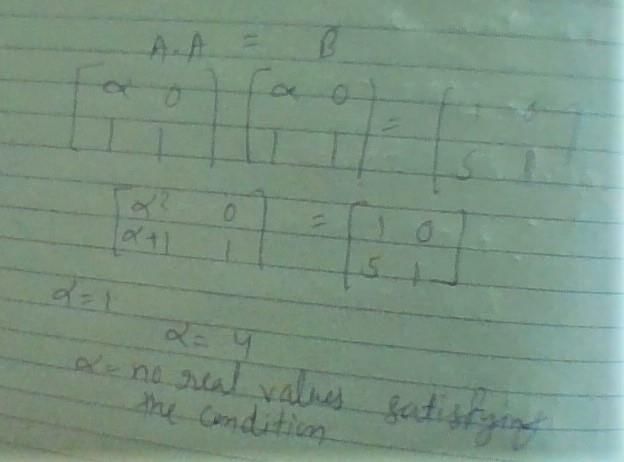 A.A = B
[α 0] [α 0] = [1 0]
[1 1] [1 1] [5 1]
[α² 0] = [1 0]
[α+1 1] [5 1]
α=1
α=4
α=no real values satisfying
the condition